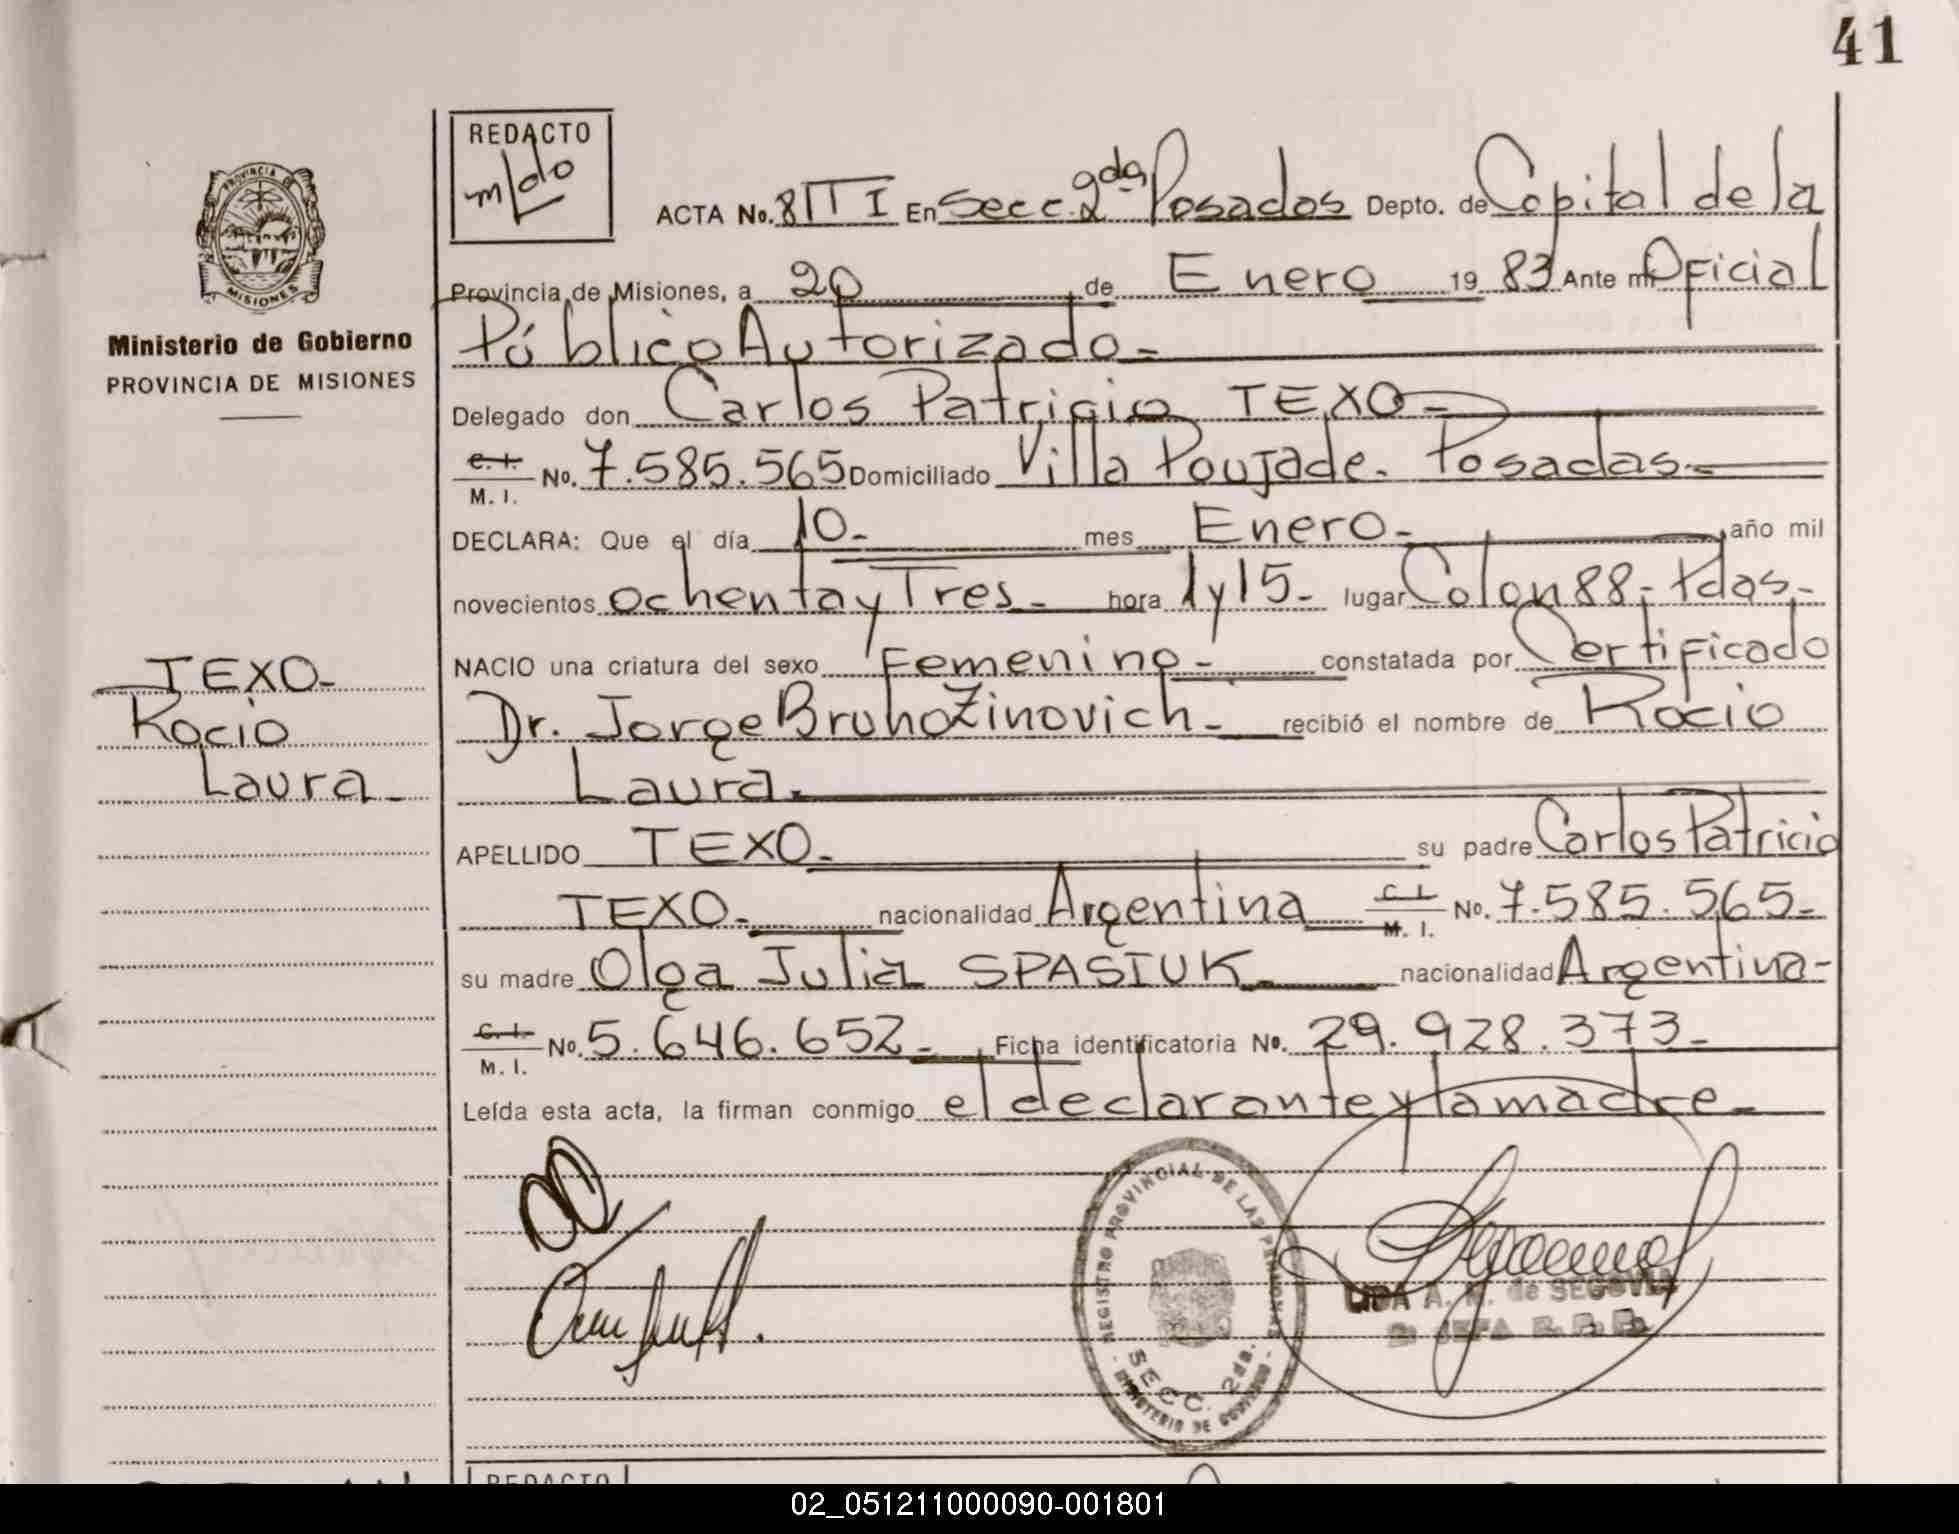 41
REDACTO
ACTA No. 8 III En Secc. 2da Posadas Depto. de Capital de la
Provincia de Misiones, a 20 de Enero 1983 Ante mi Oficial
Público Autorizado-
Delegado don Carlos Patricio TEXO-
C. I. M. I. No. 7.585.565 Domiciliado Villa Poujade. Posadas-
DECLARA: Que el día 10- mes Enero- año mil
novecientos ochenta y Tres- hora 1 y 15- lugar Colon 88,- Pdas,-
NACIO una criatura del sexo Femenino- constatada por Certificado
Dr. Jorge Bruno Zinovich- recibió el nombre de Rocio
Laura.
APELLIDO TEXO- su padre Carlos Patricio
TEXO- nacionalidad Argentina C. I. M. I. No. 7.585.565-
su madre Olga Julia SPASIUK- nacionalidad Argentina-
C. I. M. I. No. 5.646.652- Ficha identificatoria No. 29.928.373-
Leída esta acta, la firman conmigo el declarante y la madre-
PROVINCIA DE
MISIONES
Ministerio de Gobierno
PROVINCIA DE MISIONES
TEXO-
Rocio
Laura-
REGISTRO PROVINCIAL DE LAS PERSONAS
SECC. 2da.
- MINISTERIO DE GOBIERNO -
LIDA A. de SEGOVIA
REDACTO
02_051211000090-001801